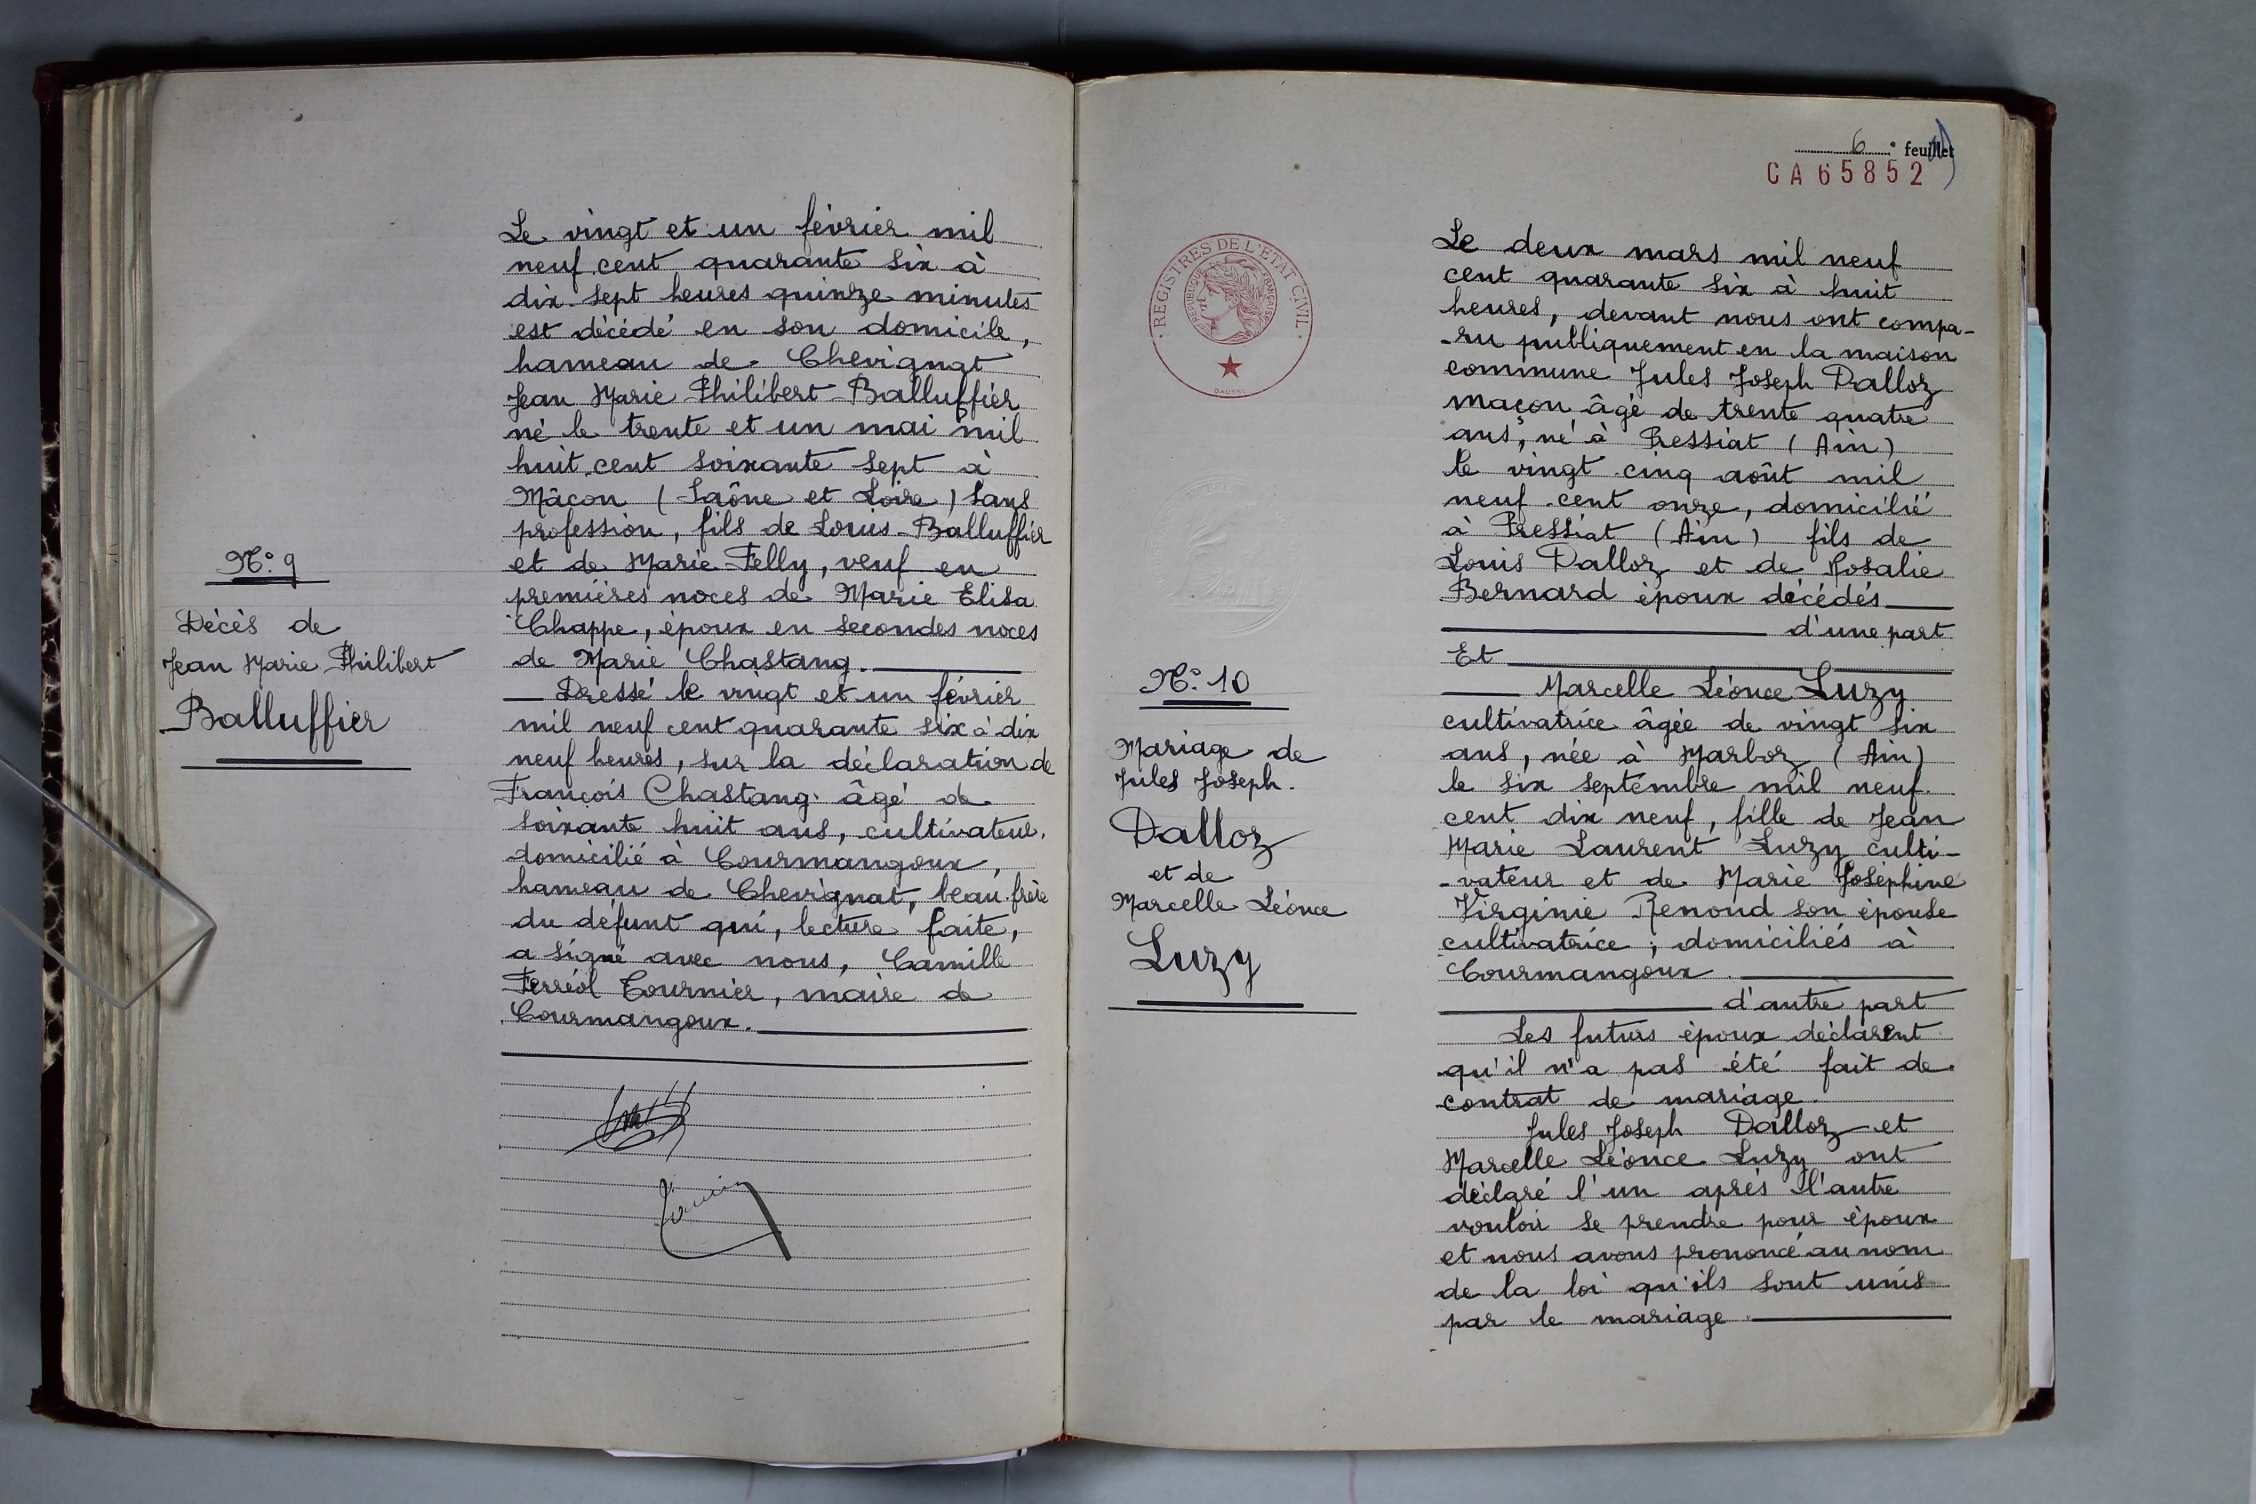 Le vingt et un février mil
neuf cent quarante six à
dix-sept heures quinze minutes
est décédé en son domicile,
hameau de Chevignat
Jean Marie Philibert Balluffier
né le trente et un mai mil
huit cent soixante sept à
Mâcon (Saône et Loire) sans
profession, fils de Louis Balluffier
et de Marie Felly, veuf en
premières noces de Marie Elisa
Chappe, époux en secondes noces
de Marie Chastang.
Dressé le vingt et un février
mil neuf cent quarante six à dix
neuf heures, sur la déclaration de
François Chastang âgé de
soixante huit ans, cultivateur,
domicilié à Courmangoux,
hameau de Chevignat, beau-frère
du défunt qui, lecture faite,
a signé avec nous, Camille
Ferréol Tournier, maire de
Courmangoux.
N° 9
Décès de
Jean Marie Philibert
Balluffier
6 e feuillet
CA65852
REGISTRES DE L'ÉTAT CIVIL
RÉPUBLIQUE FRANÇAISE
DAUSSY
N° 10
Mariage de
Jules Joseph
Dalloz
et de
Marcelle Léonce
Luzy
Le deux mars mil neuf
cent quarante six à huit
heures, devant nous ont compa-
-ru publiquement en la maison
commune Jules Joseph Dalloz
maçon âgé de trente quatre
ans, né à Pressiat (Ain)
le vingt cinq août mil
neuf cent onze, domicilié
à Pressiat (Ain) fils de
Louis Dalloz et de Rosalie
Bernard époux décédés
d'une part
Et
Marcelle Léonce Luzy
cultivatrice âgée de vingt six
ans, née à Marboz (Ain)
le six septembre mil neuf
cent dix neuf, fille de Jean
Marie Laurent Luzy culti-
-vateur et de Marie Joséphine
Virginie Renoud son épouse
cultivatrice, domiciliés à
Courmangoux.
d'autre part
Les futurs époux déclarent
qu'il n'a pas été fait de
contrat de mariage.
Jules Joseph Dalloz et
Marcelle Léonce Luzy ont
déclaré l'un après l'autre
vouloir se prendre pour époux
et nous avons prononcé au nom
de la loi qu'ils sont unis
par le mariage